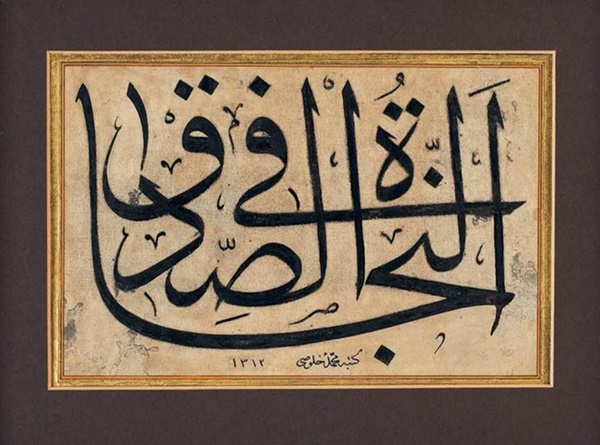 اَلنَّجَاةُ فِى الصِّدْقِ
كتبه محمد خلوصى ١٣١٢